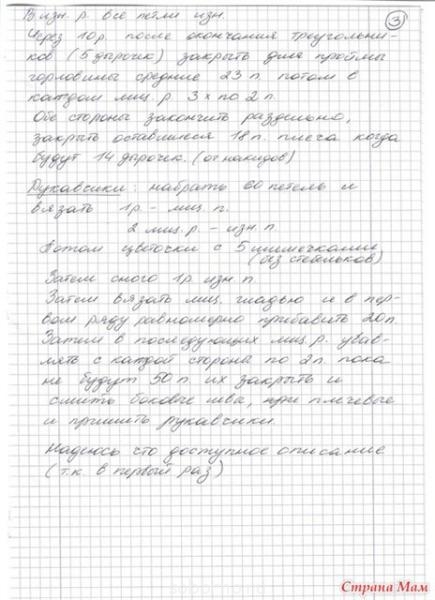 В изн. р. все петли изн.
3
Через 10 р. после окончания треугольни-
ков (5 дырочек) закрыть для проймы
горловины средние 23 п. потом в
каждом лиц. р. 3 х по 2 п.
Обе стороны закончить раздельно,
закрыть оставшиеся 18 п. плеча когда
будут 14 дырочек. (от накидов)
Рукавчики: набрать 60 петель и
вязать 1 р. – лиц. п.
2 лиц. р – изн. п.
Потом цветочки с 5 шишечками
(без стебельков)
Затем снова 1 р. изн. п.
Затем вязать лиц. гладью и в пер-
вом ряду равномерно прибавить 20 п
Затем в последующих лиц. р. убав-
лять с каждой стороны по 2 п. пока
не будут 50 п. их закрыть и
сшить боковые швы, плечевые
и пришить рукавчики.
Надеюсь что доступное описание
(т.к. в первый раз)
Страна Мам